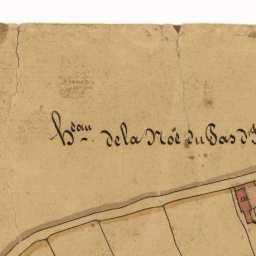 h.eau de la Noë du Pas d'